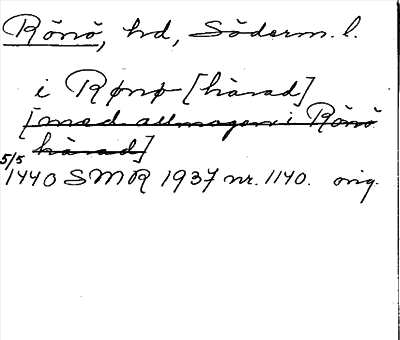 Rönö, hd, Söderm. l.
i Rønø [hærad]
[med allmogen i Rönö
härad]
5/5
1440 SMR 1937 nr. 1140. orig.